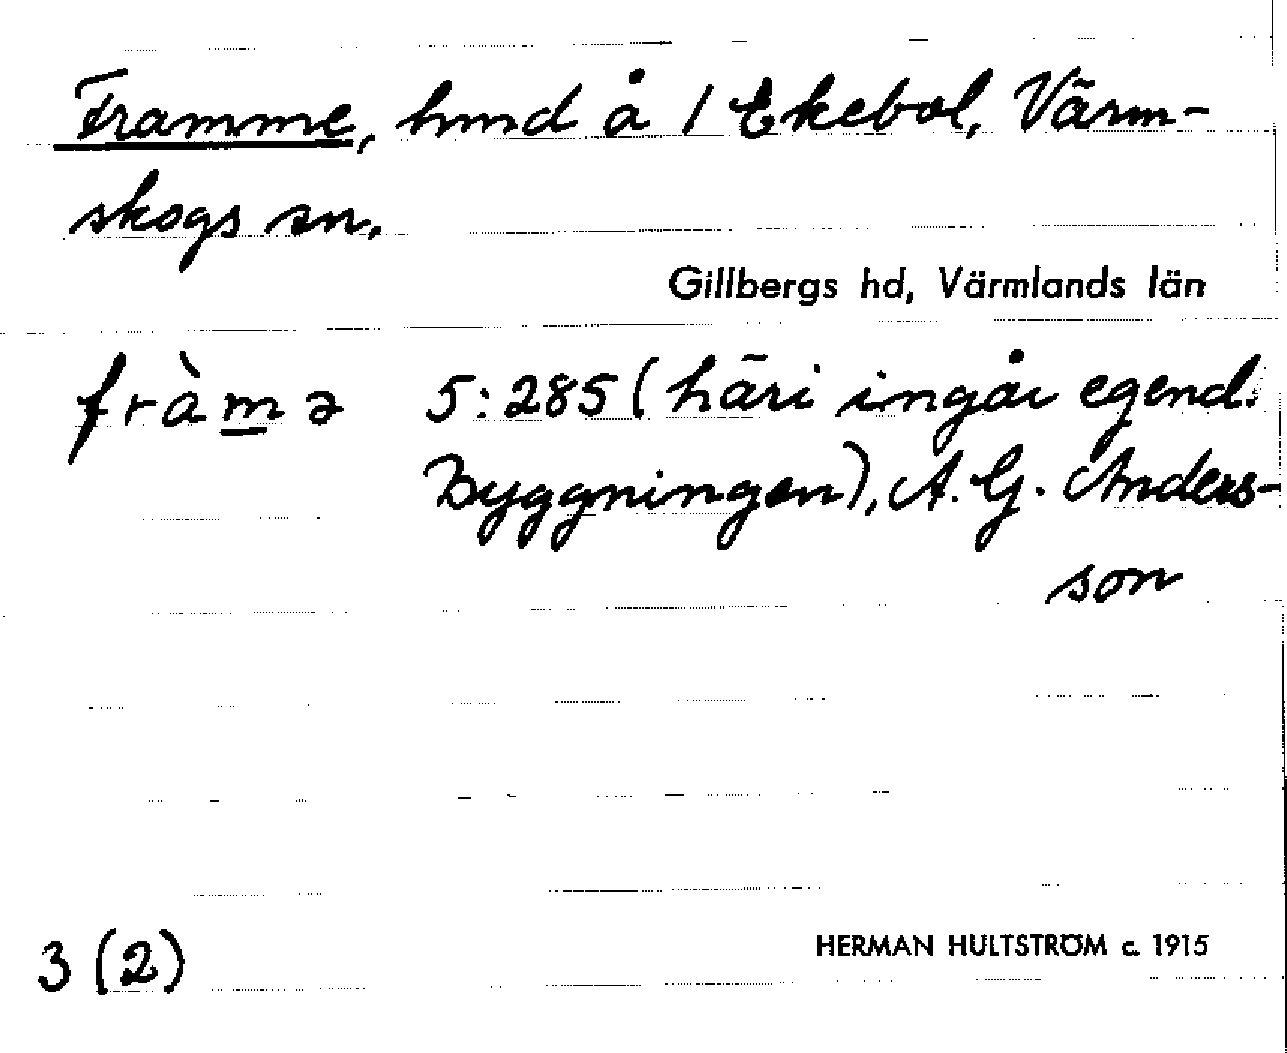 Framme, hmd å 1 Ekebol, Värm-
skogs sn.
Gillbergs hd, Värmlands län
fràmə 5:285 (häri ingår egend.
Byggningen), A. G. Anders-
son
3 (2)
HERMAN HULTSTRÖM c. 1915